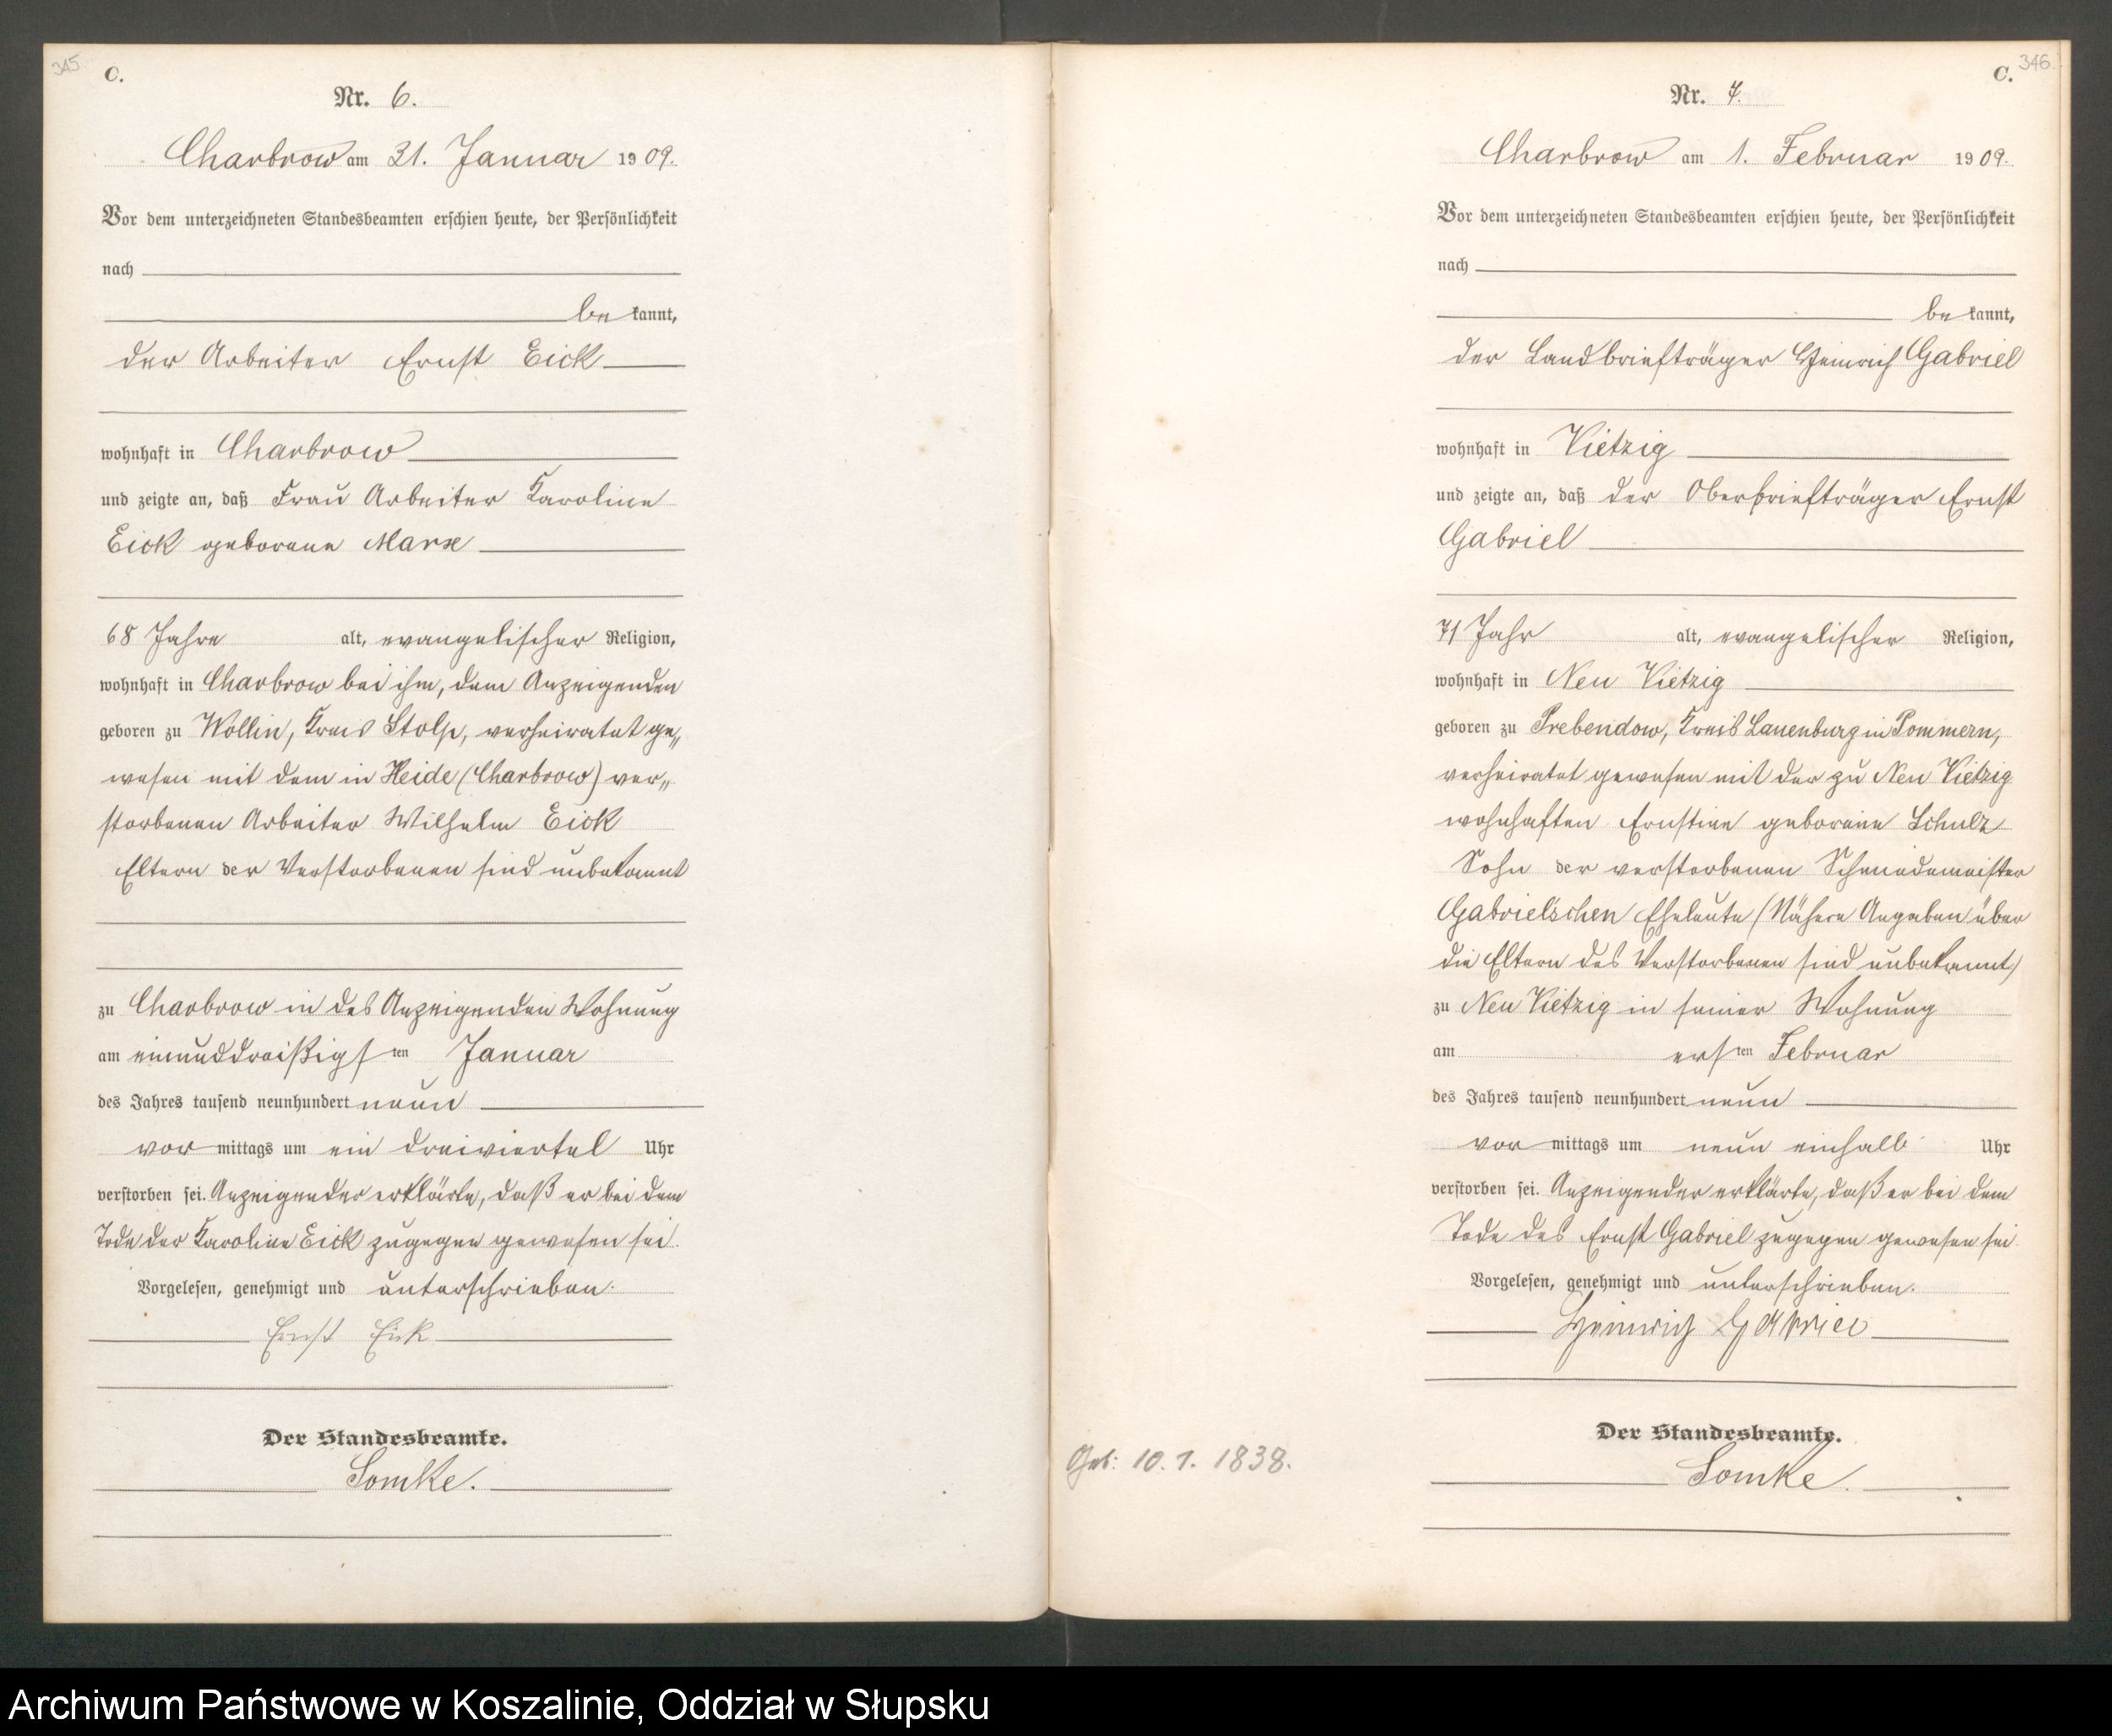 345
C.
Nr. 6.
Charbrow am 31. Januar 1909.
Vor dem unterzeichneten Standesbeamten erschien heute, der Persönlichkeit
nach
be kannt,
der Arbeiter Ernst Eick
wohnhaft in Charbrow
und zeigte an, daß Frau Arbeiter Karoline
Eick geborene Marx
68 Jahre alt, evangelischer Religion,
wohnhaft in Charbrow bei ihm, dem Anzeigenden
geboren zu Wollin, Kreis Stolp, verheiratet ge„
wesen mit dem in Heide (Charbrow) ver„
storbenen Arbeiter Wilhelm Eick
Eltern der Verstorbenen sind unbekannt
zu Charbrow in des Anzeigenden Wohnung
am einunddreißigsten Januar
des Jahres tausend neunhundert neun
vor mittags um ein dreiviertel Uhr
verstorben sei. Anzeigender erklärte, daß er bei dem
Tode der Karoline Eick zugegen gewesen sei.
Vorgelesen, genehmigt und unterschrieben.
Ernst Eick
Der Standesbeamte.
Lomke.
346
C.
Nr. 7.
Charbrow am 1. Februar 1909.
Vor dem unterzeichneten Standesbeamten erschien heute, der Persönlichkeit
nach
be kannt,
der Landbriefträger Heinrich Gabriel
wohnhaft in Vietzig
und zeigte an, daß der Oberbriefträger Ernst
Gabriel
71 Jahr alt, evangelischer Religion,
wohnhaft in Neu Vietzig
geboren zu Prebendow, Kreis Lauenburg in Pommern,
verheiratet gewesen mit der zu Neu Vietzig
wohnhaften Ernstine geborene Schulz
Sohn der verstorbenen Schmiedemeister
Gabriel'schen Eheleute (Nähere Angaben über
die Eltern des Verstorbenen sind unbekannt)
zu Neu Vietzig in seiner Wohnung
am ersten Februar
des Jahres tausend neunhundert neun
vor mittags um neun einhalb Uhr
verstorben sei. Anzeigender erklärte, daß er bei dem
Tode des Ernst Gabriel zugegen gewesen sei.
Vorgelesen, genehmigt und unterschrieben.
Heinrich Gabriel
Der Standesbeamte.
Lomke.
Geb: 10. 1. 1838.
Archiwum Państwowe w Koszalinie, Oddział w Słupsku